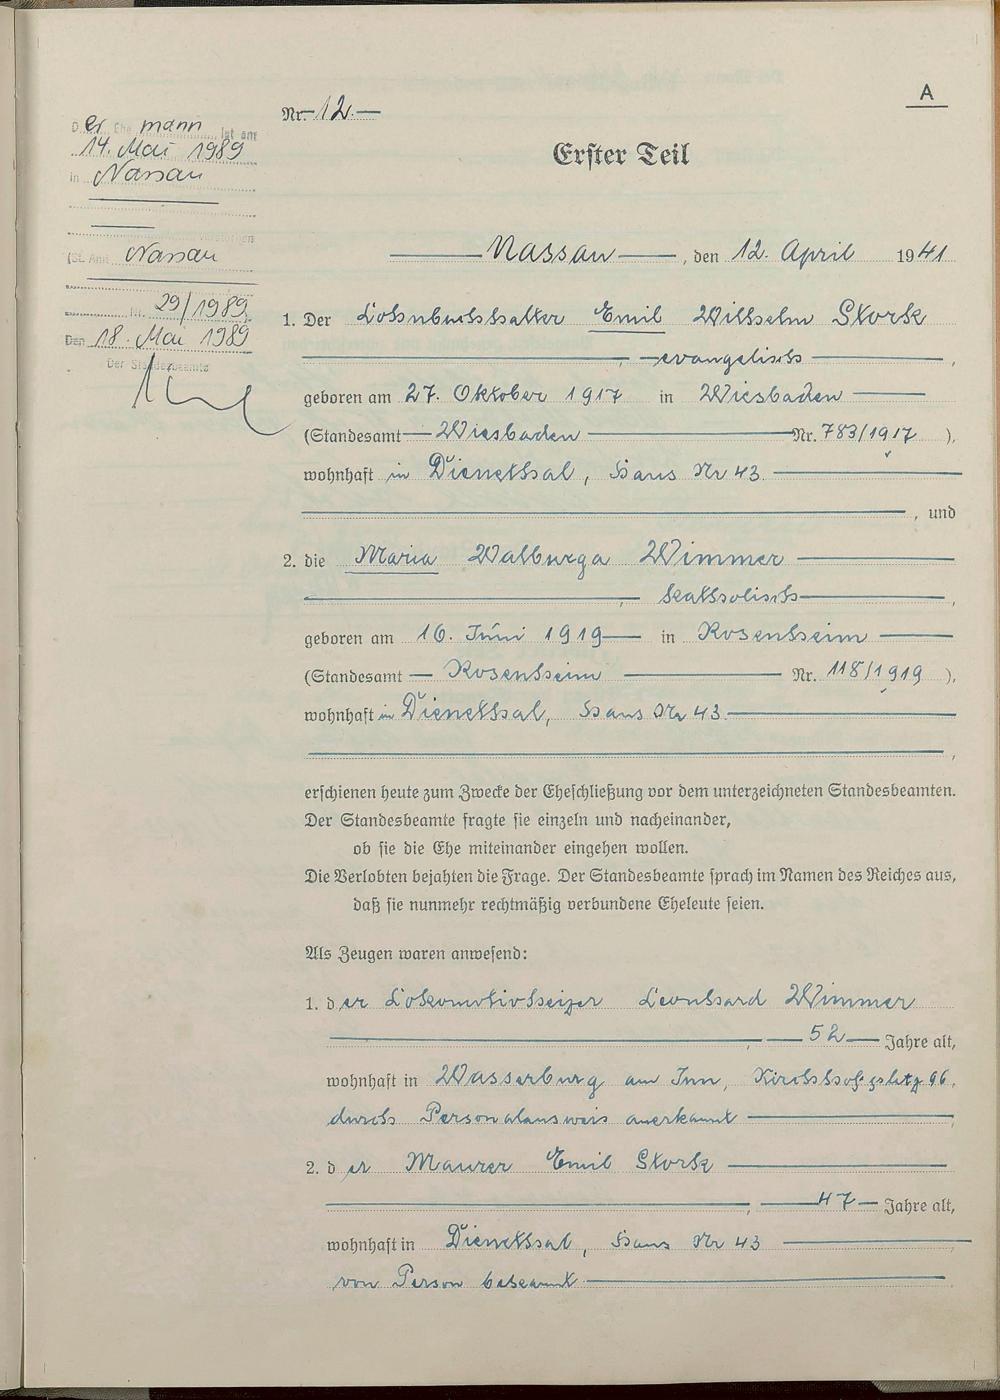 A
Nr. 12.
Erster Teil
Der Ehemann ist am
14. Mai 1989
in Nassau
verstorben
(St. Amt Nassau
Nr. 29/1989
Den 18. Mai 1989
Der Standesbeamte
Nassau, den 12. April 1941
1. Der Lohnbuchhalter Emil Wilhelm Stork
, evangelisch,
geboren am 27. Oktober 1917 in Wiesbaden
(Standesamt Wiesbaden Nr. 783/1917),
wohnhaft in Dienethal, Haus Nr 43
, und
2. die Maria Walburga Wimmer
, katholisch,
geboren am 16. Juni 1919 in Rosenheim
(Standesamt Rosenheim Nr. 118/1919),
wohnhaft in Dienethal, Haus Nr 43
,
erschienen heute zum Zwecke der Eheschließung vor dem unterzeichneten Standesbeamten.
Der Standesbeamte fragte sie einzeln und nacheinander,
ob sie die Ehe miteinander eingehen wollen.
Die Verlobten bejahten die Frage. Der Standesbeamte sprach im Namen des Reiches aus,
daß sie nunmehr rechtmäßig verbundene Eheleute seien.
Als Zeugen waren anwesend:
1. der Lokomotivheizer Leonhard Wimmer
, 52 Jahre alt,
wohnhaft in Wasserburg am Inn,
durch Personalausweis anerkannt
2. der Maurer Emil Stork
, 47 Jahre alt,
wohnhaft in Dienethal, Haus Nr 43
von Person bekannt